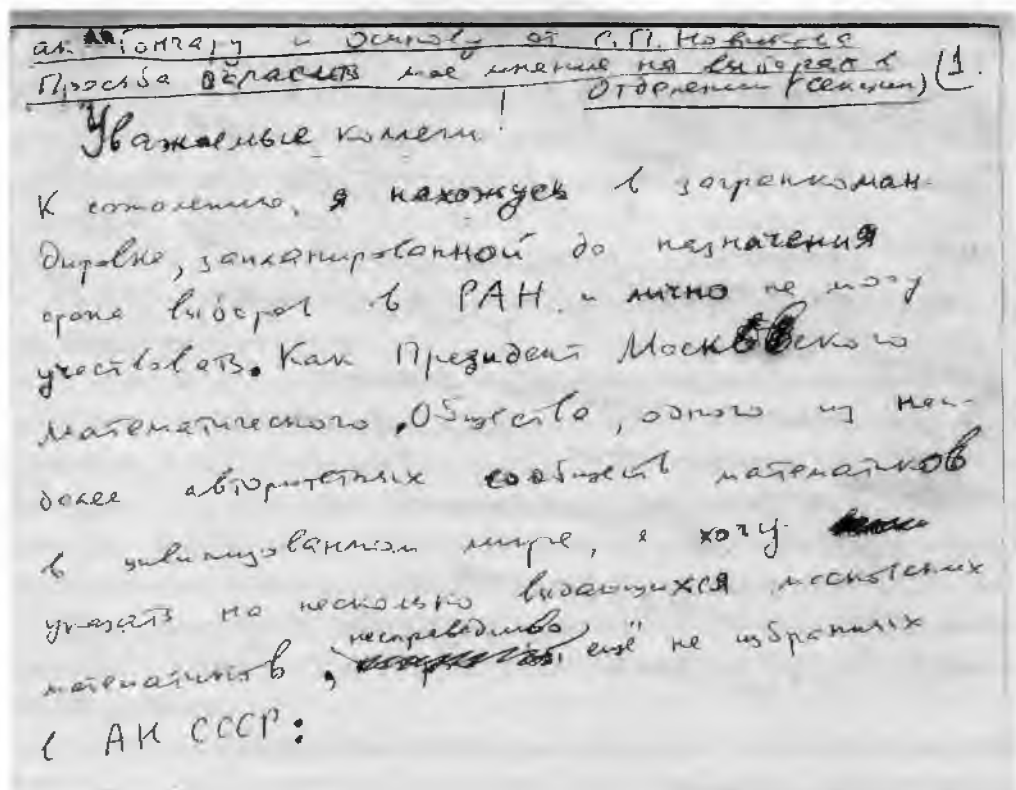 ак. Гончару и Осипову от С.П. Новикова
Просьба огласить моё мнение на выборах в
Отделении (секции) (1.
Уважаемые коллеги!
К сожалению, я нахожусь в загранкоман-
дировке, запланированной до назначения
срока выборов в РАН и лично не могу
участвовать. Как Президент Московского
Математического Общества, одного из наи-
более авторитетных сообществ математиков
в цивилизованном мире, я хочу
указать на несколько выдающихся московских
математиков, несправедливо ещё не избранных
в АН СССР: